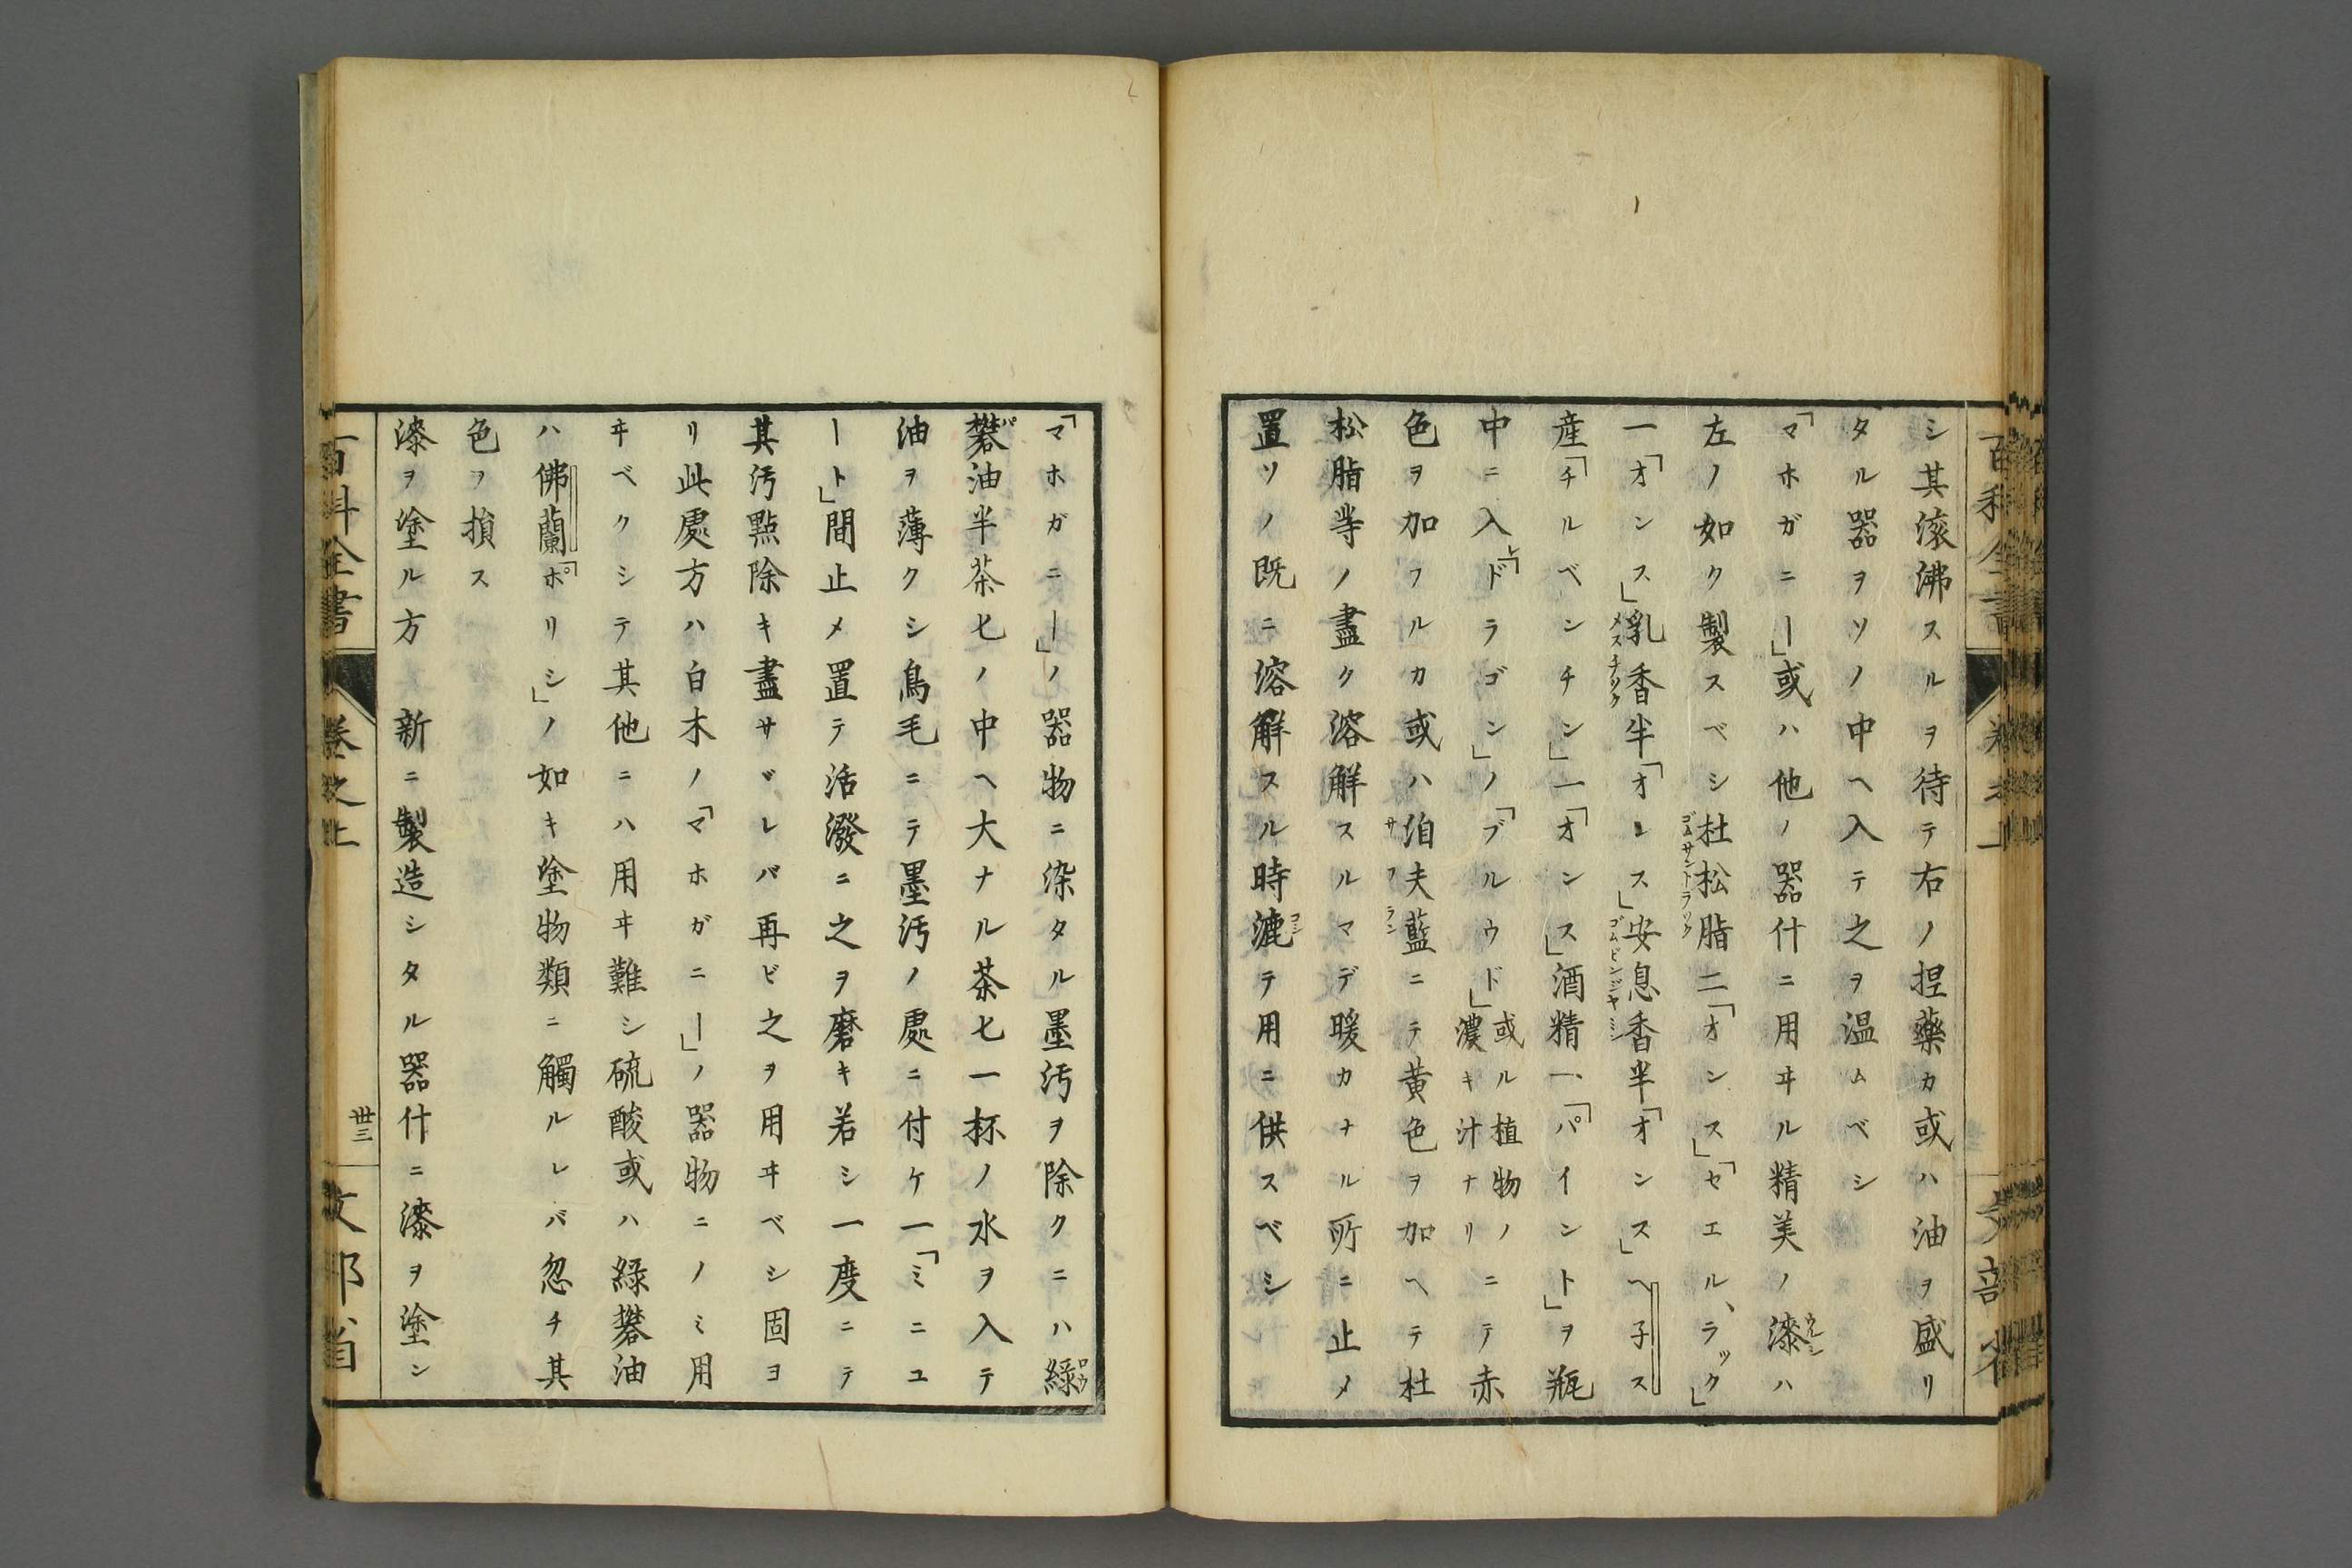 シ其滾沸スルヲ待テ右ノ捏藥カ或ハ油ヲ盛リ
タル器ヲソノ中ヘ入テ之ヲ温ムベシ
「マホガニー」或ハ他ノ器什ニ用ヰル精美ノ漆ハ
左ノ如ク製スベシ杜松脂二「オンス」「セエル、ラック」
一「オンス」乳香半「オンス」安息香半「オンス」ヘ子ス
産「チルベンチン」一「オンス」酒精一、「パイント」ヲ瓶
中ニ入レ「ドラゴン」ノ「ブルウド」或ル植物ノ濃キ汁ナリニテ赤
色ヲ加フルカ或ハ洎夫藍ニテ黄色ヲ加ヘテ杜
松脂等ノ盡ク溶解スルマデ暖カナル所ニ止メ
置ソノ既ニ溶解スル時漉テ用ニ供スベシ
「マホガニー」ノ器物ニ染タル墨汚ヲ除クニハ綠
礬油半茶匕ノ中ヘ大ナル茶匕一杯ノ水ヲ入テ
油ヲ薄クシ鳥毛ニテ墨汚ノ處ニ付ケ一「ミニユ
ート」間止メ置テ活潑ニ之ヲ磨キ若シ一度ニテ
其汚點除キ盡サヾレバ再ビ之ヲ用ヰベシ固ヨ
リ此處方ハ白木ノ「マホガニー」ノ器物ニノミ用
ヰベクシテ其他ニハ用ヰ難シ硫酸或ハ綠礬油
ハ佛蘭「ポリシ」ノ如キ塗物類ニ觸ルレバ忽チ其
色ヲ損ス
漆ヲ塗ル方 新ニ製造シタル器什ニ漆ヲ塗ン
百科全書 卷之上 丗三 文部省